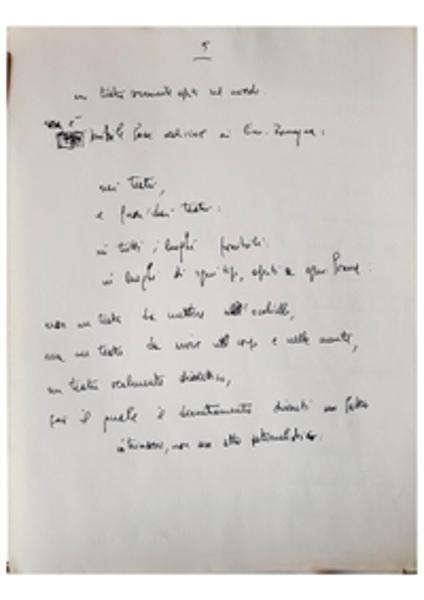 5
un teatro veramente aperto nel mondo.
è possibile fare in Em. Romagna:
nei teatri,
e fuori dai teatri:
in tutti i luoghi possibili:
in luoghi di ogni tipo, aperti a ogni forma:
non un teatro da mettere all'occhiello,
ma un teatro da vivere nel corpo e nella mente,
un teatro realmente dialettico,
per il quale il decentramento diventi un fatto
intrinseco, non un atto paternalistico.